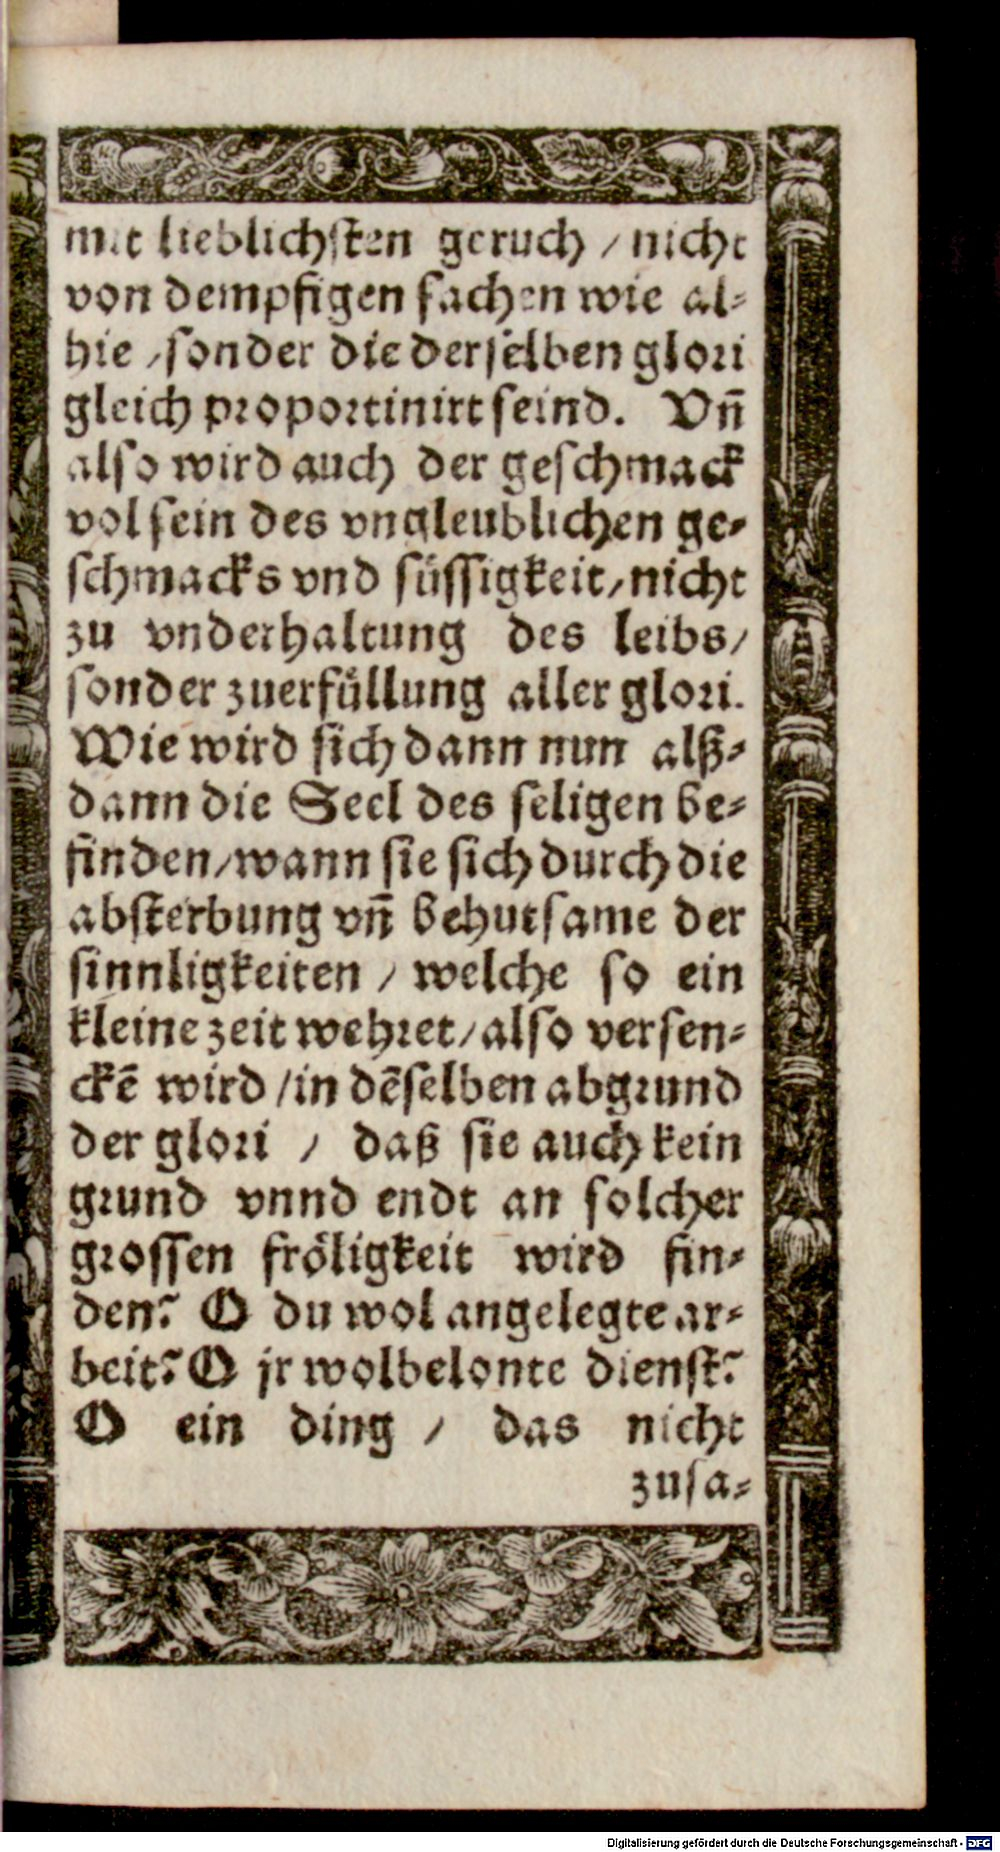 mit lieblichsten geruch / nicht
von dempfigen sachen wie al⸗
hie / sonder die derselben glori
gleich proportinirt seind. Vñ
also wird auch der geschmack
vol sein des vngleublichen ge⸗
schmacks vnd süssigkeit / nicht
zu vnderhaltung des leibs /
sonder zuerfüllung aller glori.
Wie wird sich dann nun alß⸗
dann die Seel des seligen be⸗
finden / wann sie sich durch die
absterbung vñ behutsame der
sinnligkeiten / welche so ein
kleine zeit wehret / also versen⸗
ckē wird / in dēselben abgrund
der glori / daß sie auch kein
grund vnnd endt an solcher
grossen fröligkeit wird fin⸗
den? O du wol angelegte ar⸗
beit? O jr wolbelonte dienst?
O ein ding / das nicht
zusa⸗
Digitalisierung gefördert durch die Deutsche Forschungsgemeinschaft - DFG